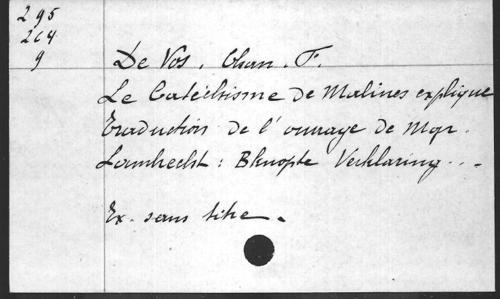 295
264
9
De Vos, Chan. F.
Le Catéchisme de Malines expliqué
Traduction de l'ouvrage de Mgr.
Lambrecht : Bknopte Verklaring...
Ex. sans titre.